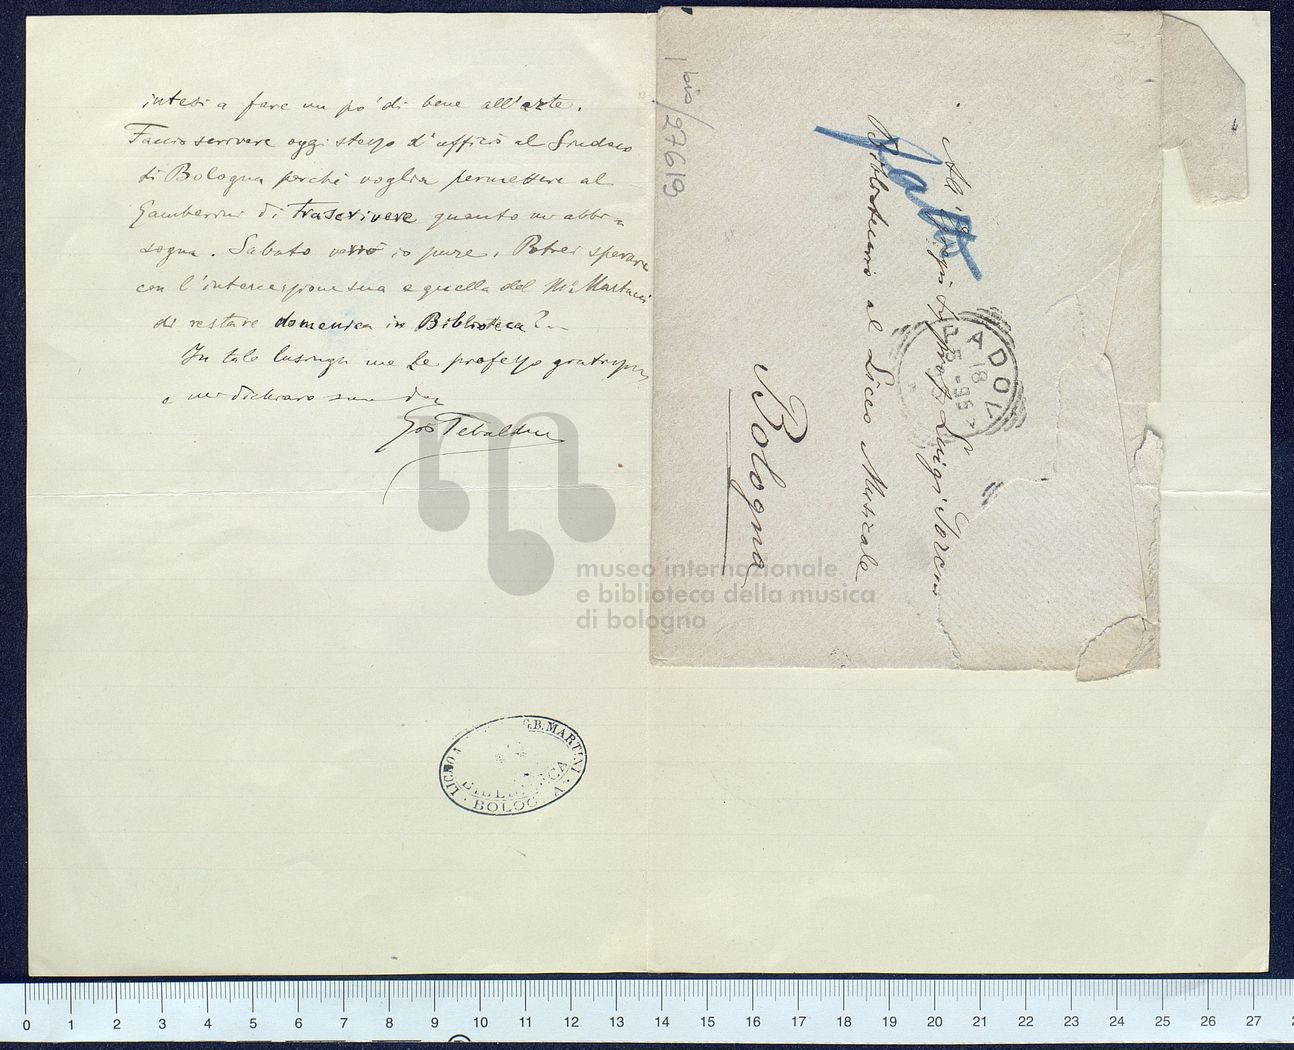 intesi a fare un po' di bene all'arte.
Faccio scrivere oggi stesso d'ufficio al Sindaco
di Bologna perchè voglia permettere al
Gamberini di trascrivere quanto mi abbi-
sogna. Sabato verrò io pure. Potrei sperare
con l'intercessione sua e quella del Mo Martucci
di restare domenica in Biblioteca?
In tale lusinga me Le professo
e mi dichiaro suo
Gio Tebaldini
LICEO G.B. MARTINI
BIBLIOTECA
BOLOGNA
27619
Fatto
All' Egregio Sig prof. Luigi Torchi
Bibliotecario al Liceo Musicale
Bologna
PADOVA
18
5 - 95
museo internazionale
e biblioteca della musica
di bologna
0 1 2 3 4 5 6 7 8 9 10 11 12 13 14 15 16 17 18 19 20 21 22 23 24 25 26 27